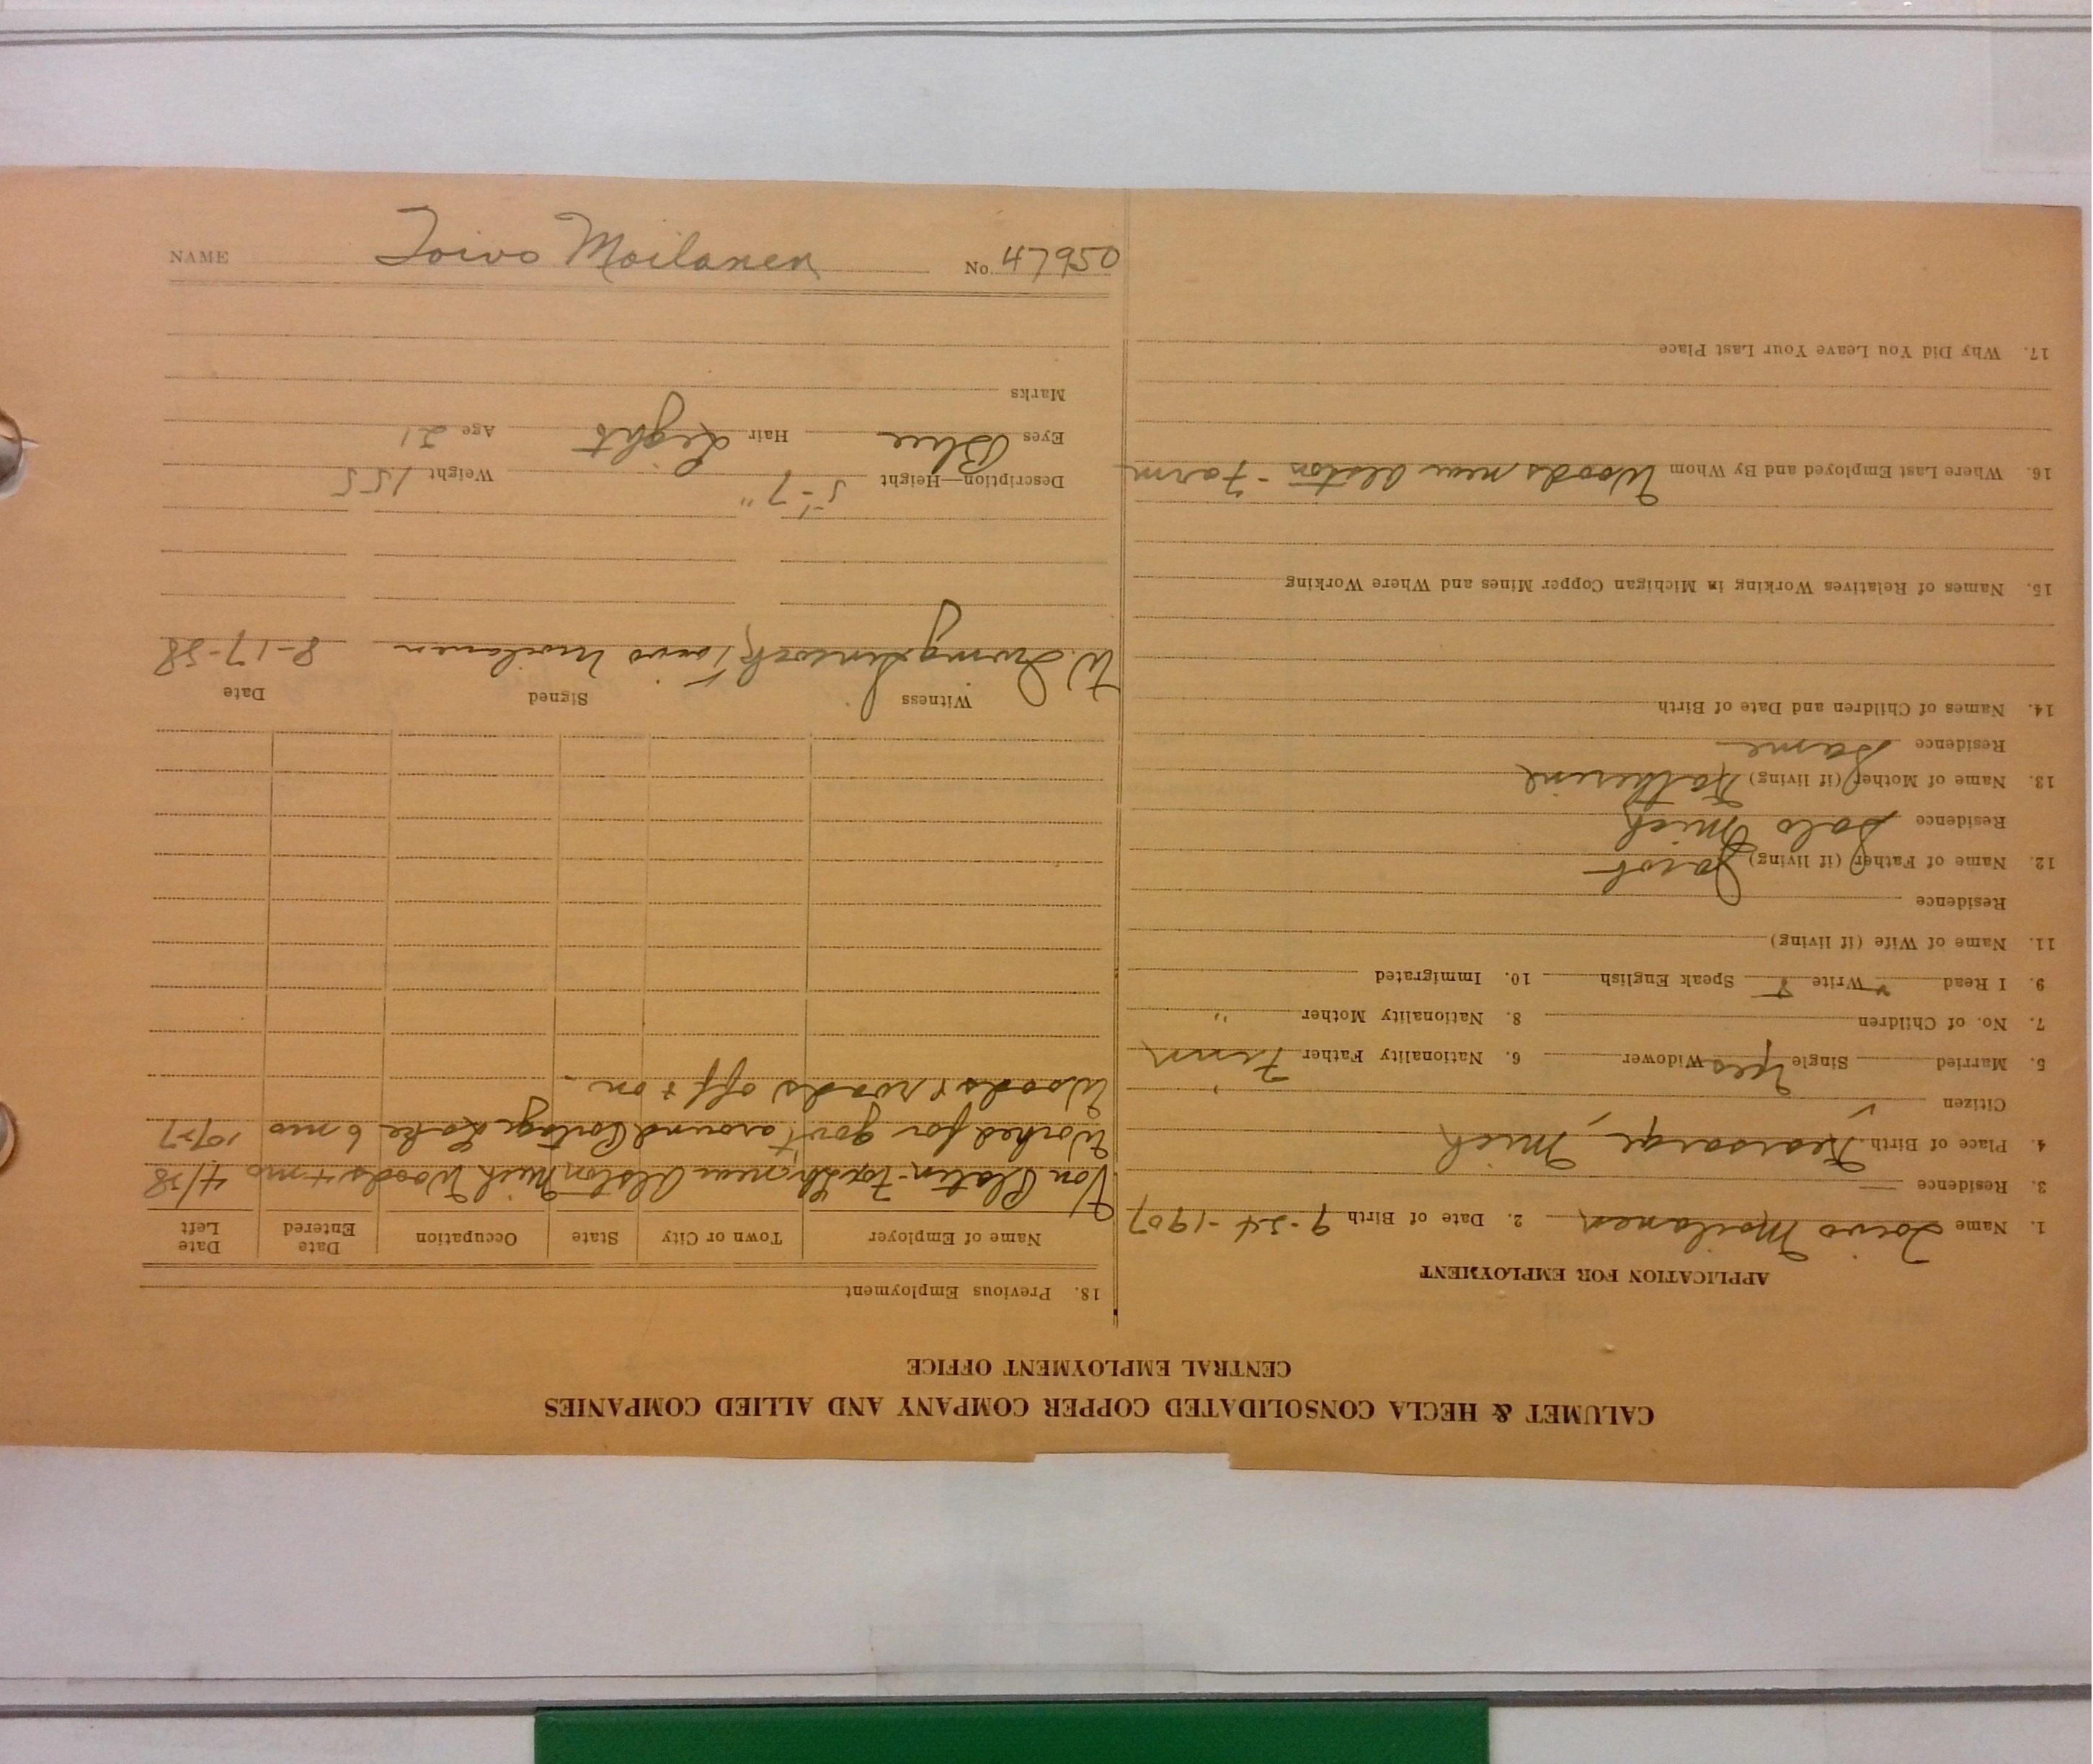 CALUMET & HECLA CONSOLIDATED COPPER COMPANY AND ALLIED COMPANIES
CENTRAL EMPLOYMENT OFFICE
APPLICATION FOR EMPLOYMENT
1. Name Toivo Moilanen 2. Date of Birth 9-24-1907
3. Residence —
4. Place of Birth Kearsarge, Mich
Citizen ✓
5. Married Single Yes Widower 6. Nationality Father Finn
7. No. of Children 8. Nationality Mother "
9. I Read ✓ Write ✓ Speak English 10. Immigrated
11. Name of Wife (if living)
Residence
12. Name of Father (if living) Jacob
Residence Salo Mich
13. Name of Mother (if living) Katherine
Residence Same
14. Names of Children and Date of Birth
15. Names of Relatives Working in Michigan Copper Mines and Where Working
16. Where Last Employed and By Whom Woods near Alston - Farm
17. Why Did You Leave Your Last Place
18. Previous Employment
Name of Employer Town or City State Occupation Date Entered Date Left
Von Platin-Fox near Alston Mich Woods 4 mo 4/28
Worked for govt around Portage Lake 6 mo 1927
Woods & roads off & on
Witness Signed Date
W. Toivo Moilanen 8-17-28
Description—Height 5'-7" Weight 155
Eyes Blue Hair Light Age 21
Marks
NAME Toivo Moilanen No. 47950